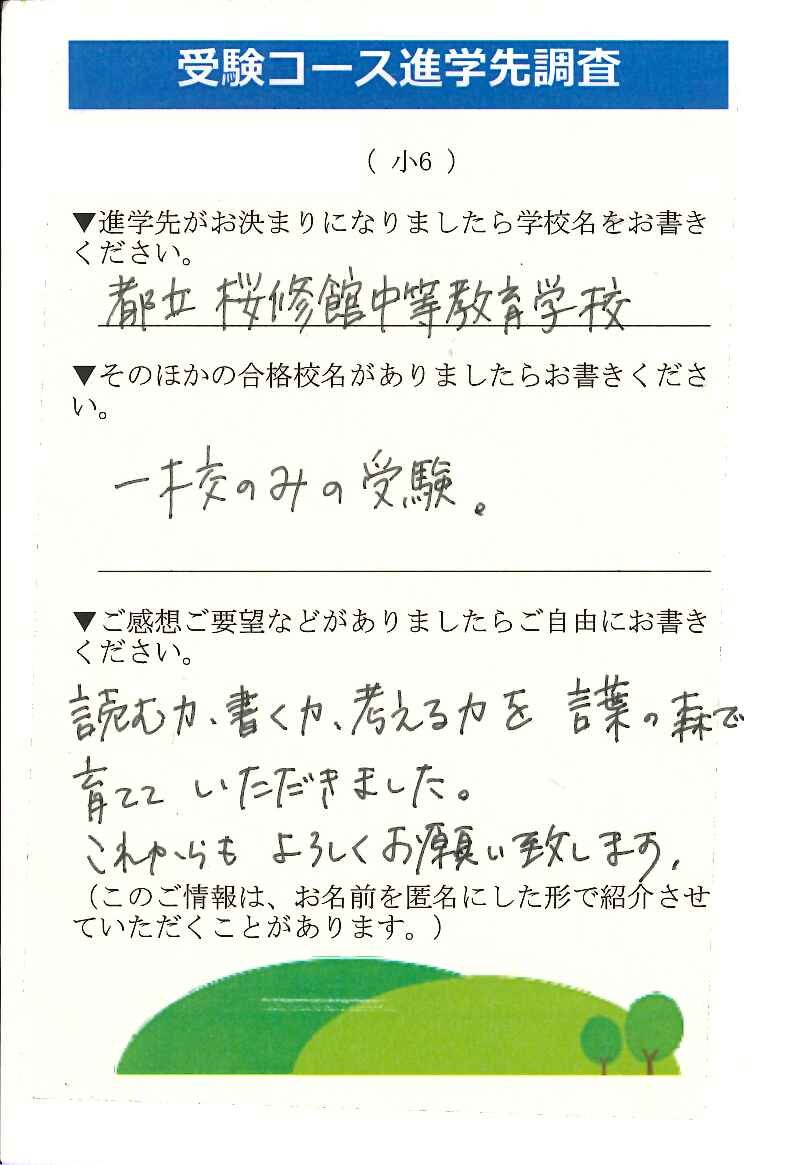 受験コース進学先調査
（ 小6 ）
▼進学先がお決まりになりましたら学校名をお書き
ください。
都立 桜修館中等教育学校
▼そのほかの合格校名がありましたらお書きくださ
い。
一校のみの受験。
▼ご感想ご要望などがありましたらご自由にお書き
ください。
読む力、書く力、考える力を 言葉の森で
育てて いただきました。
これからも よろしくお願い致します。
（このご情報は、お名前を匿名にした形で紹介させ
ていただくことがあります。）